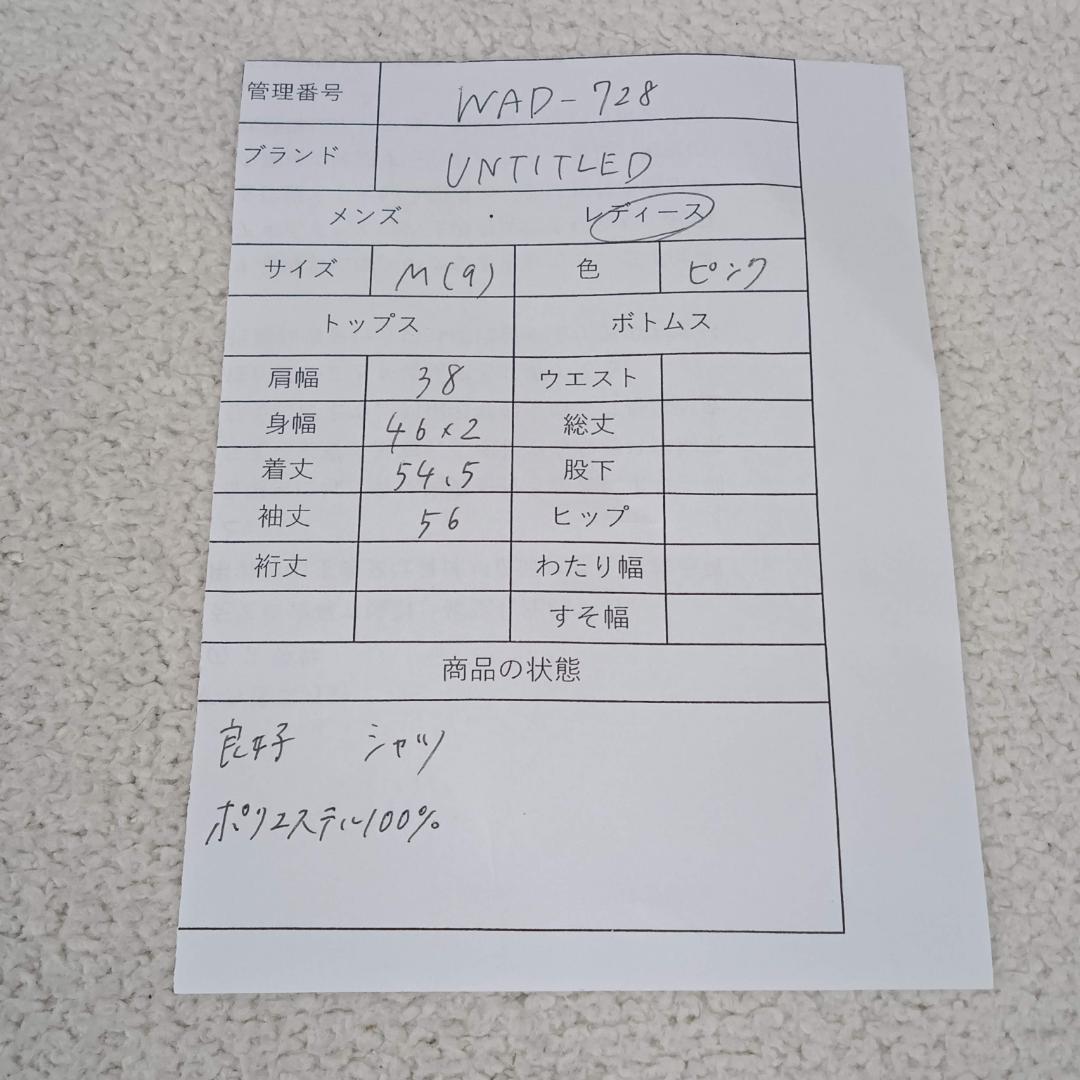 管理番号 WAD-728
ブランド UNTITLED
メンズ ・ レディース
サイズ M(9) 色 ピンク
トップス ボトムス
肩幅 38 ウエスト
身幅 46×2 総丈
着丈 54.5 股下
袖丈 56 ヒップ
裄丈 わたり幅
すそ幅
商品の状態
良好 シャツ
ポリエステル100%